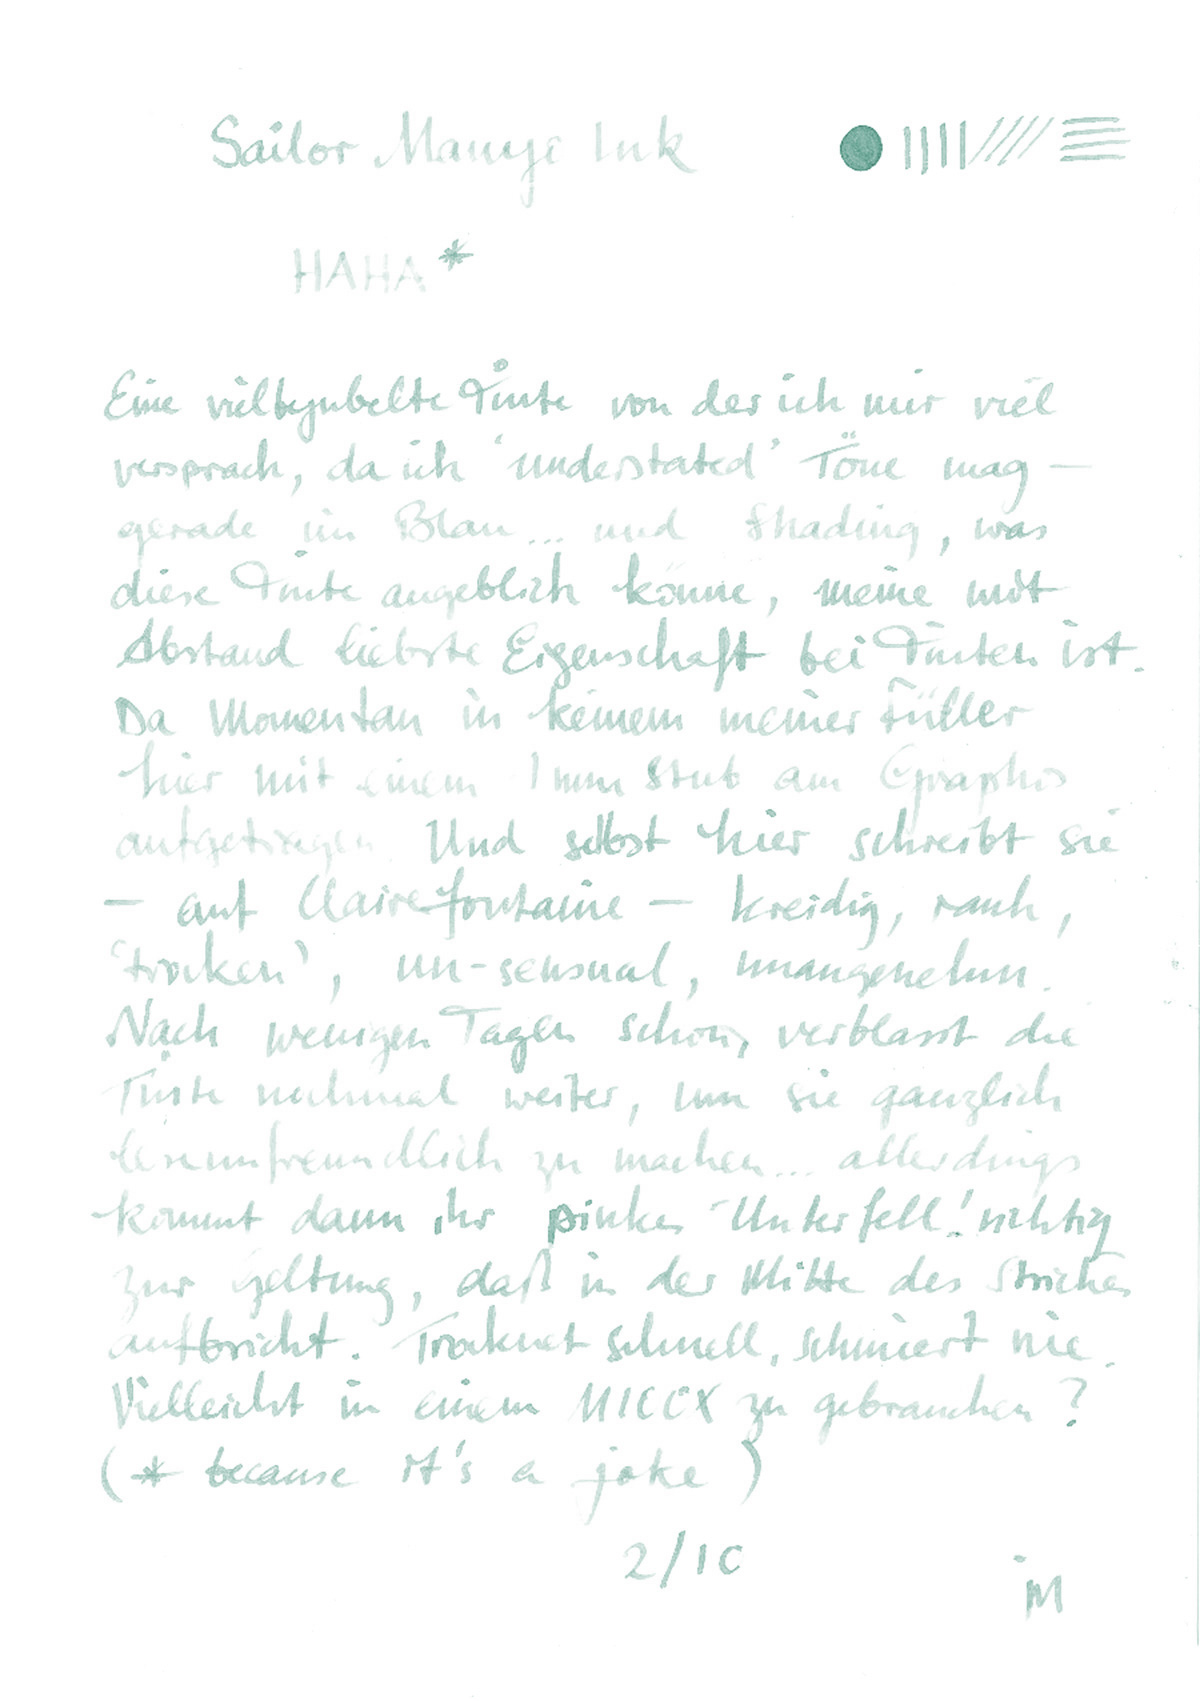 Sailor Manyo Ink
HAHA*
Eine vielbejubelte Tinte von der ich mir viel
versprach, da ich 'understated' Töne mag —
gerade im Blau... und Shading, was
diese Tinte angeblich könne, meine mit
Abstand liebste Eigenschaft bei Tinten ist.
Da momentan in keinem meiner Füller
hier mit einem 1mm Stub am Graphos
aufgetragen. Und selbst hier schreibt sie
— auf Clairefontaine — kreidig, rauh,
'trocken', un-sensual, unangenehm.
Nach wenigen Tagen schon, verblasst die
Tinte nochmal weiter, um sie gänzlich
leseunfreundlich zu machen... allerdings
kommt dann ihr pinkes 'Unterfell' richtig
zur Geltung, daß in der Mitte des Striches
aufbricht. Trocknet schnell, schmiert nie.
Vielleicht in einem zu gebrauchen?
(* because it's a joke)
2/10
iM